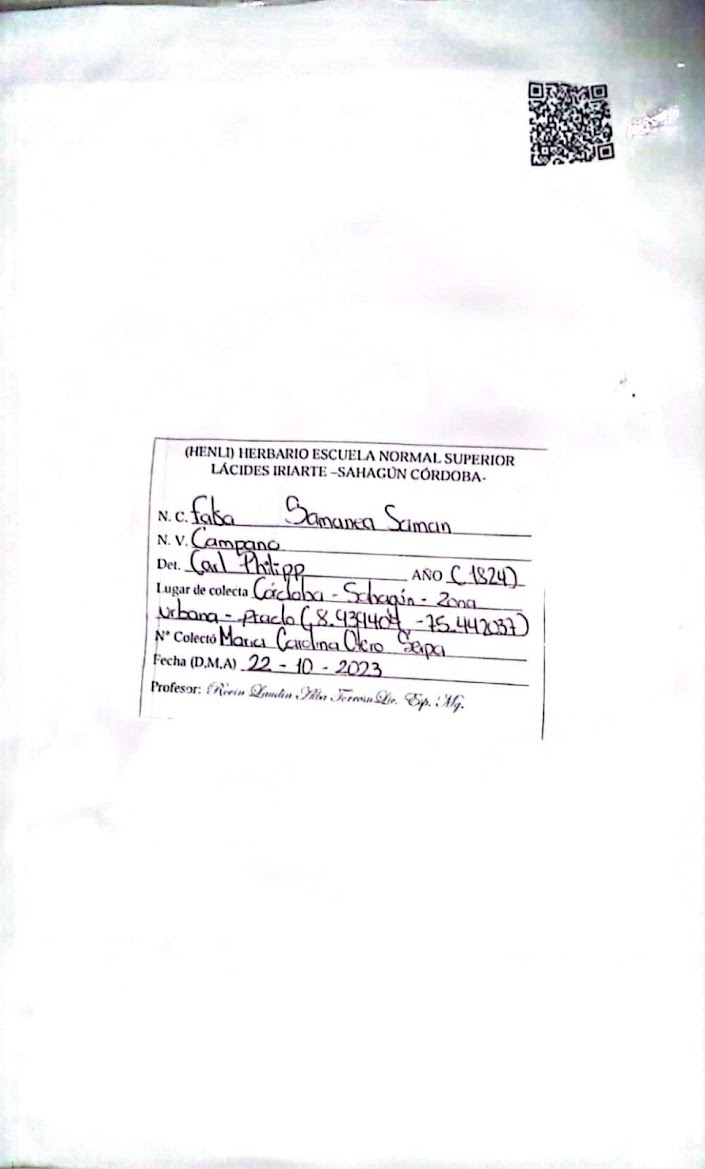 (HENLI) HERBARIO ESCUELA NORMAL SUPERIOR
LÁCIDES IRIARTE –SAHAGÚN CÓRDOBA-
N. C. Falsa Samanea Saman
N. V. Campano
Det. Carl Philipp AÑO (1824)
Lugar de colecta Córdoba - Sahagún - Zona
Urbana - prado (8.939404, -75.442037)
N° Colectó Maria Carolina Otero Serpa
Fecha (D,M,A) 22 - 10 - 2023
Profesor: Alba Lic. Esp. Mg.